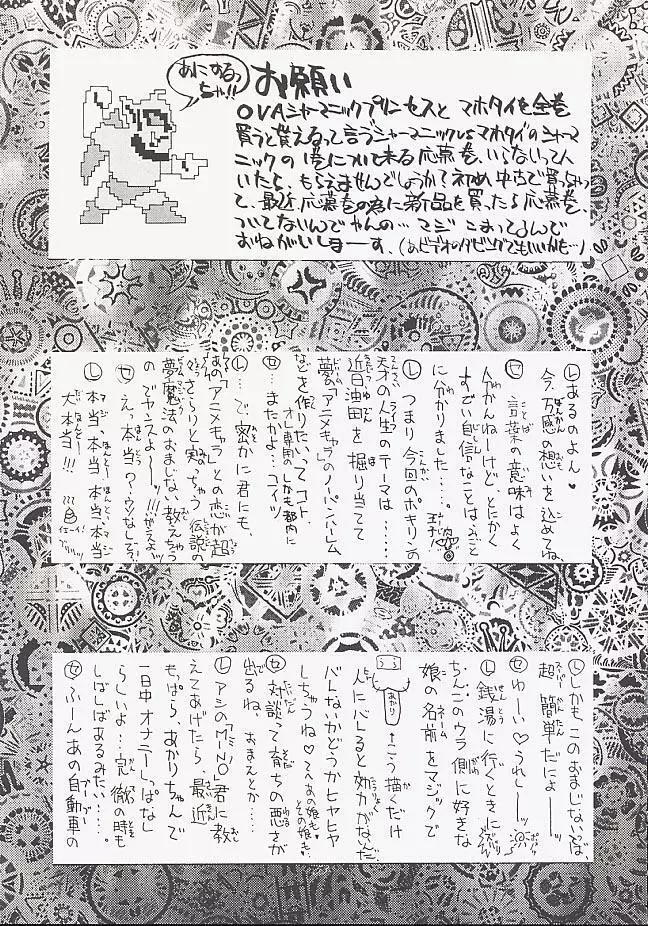 あにするっちゃ!!
お願い
OVAシャーマニックプリンセスと マホタイを全巻
買うと貰えるって言うシャーマニックVSマホタイのシャーマ
ニックの1巻について来る応募巻、いらないって人
いたら、もらえませんでしょうか?初め中古で買っちゃっ
て、最近、応募巻の為に新品を買ったら応募巻、
ついてないんでやんの…マジ こまってるんで
おねがいしまーす、(あとビデオのダビングでもいいかも…)
Ⓛあるのよん♥
今、万感の想いを込めてね、
Ⓨ言葉の意味はよく
分かんねけど、とにかく
すごい自信なことはみごと
に分かりました…。
Ⓛつまり今回のポキリンの
天才の人生のテーマは……
近日油田を掘り当てて
夢の「アニメキャラ」のノーパンハーレム
などを作りたいってコト、
オレ専用のしかも都内に
Ⓨ…またかよ…コイツ
Ⓛ…で、密かに君にも、
あの「アニメキャラ」との恋が超
さらりと実っちゃう伝説の
夢魔法のおまじない、教えちゃう
のでヤンスよーーッ!!!がえよッ
Ⓨえっ本当?ウソなしで?
Ⓛ本当、本当、本当、本当
大本当!!!
イエーイ!
Ⓛしかもこのおまじないは、
超簡単だによーーッ
Ⓨわーい♡うれしーーッ
Ⓛ銭湯に行くときに
ちんこのウラ側に好きな
娘の名前をマジックで
あかり
←こう描くだけ
人にバレると効力がないんだ
バレないかどうかヒヤヒヤ
しちゃうね♡てへあの娘も♥その娘も…
Ⓨ対談って育ちの悪さが
出るね、おまえとか……
ⓁアシのMINO君に教
えてあげたら、最近
もっぱら、あかりちゃんで
一日中オナニーしっぱなし
らしいよ…完徹の時も
しばしばあるみたい…。
Ⓨふーんあの自動車の